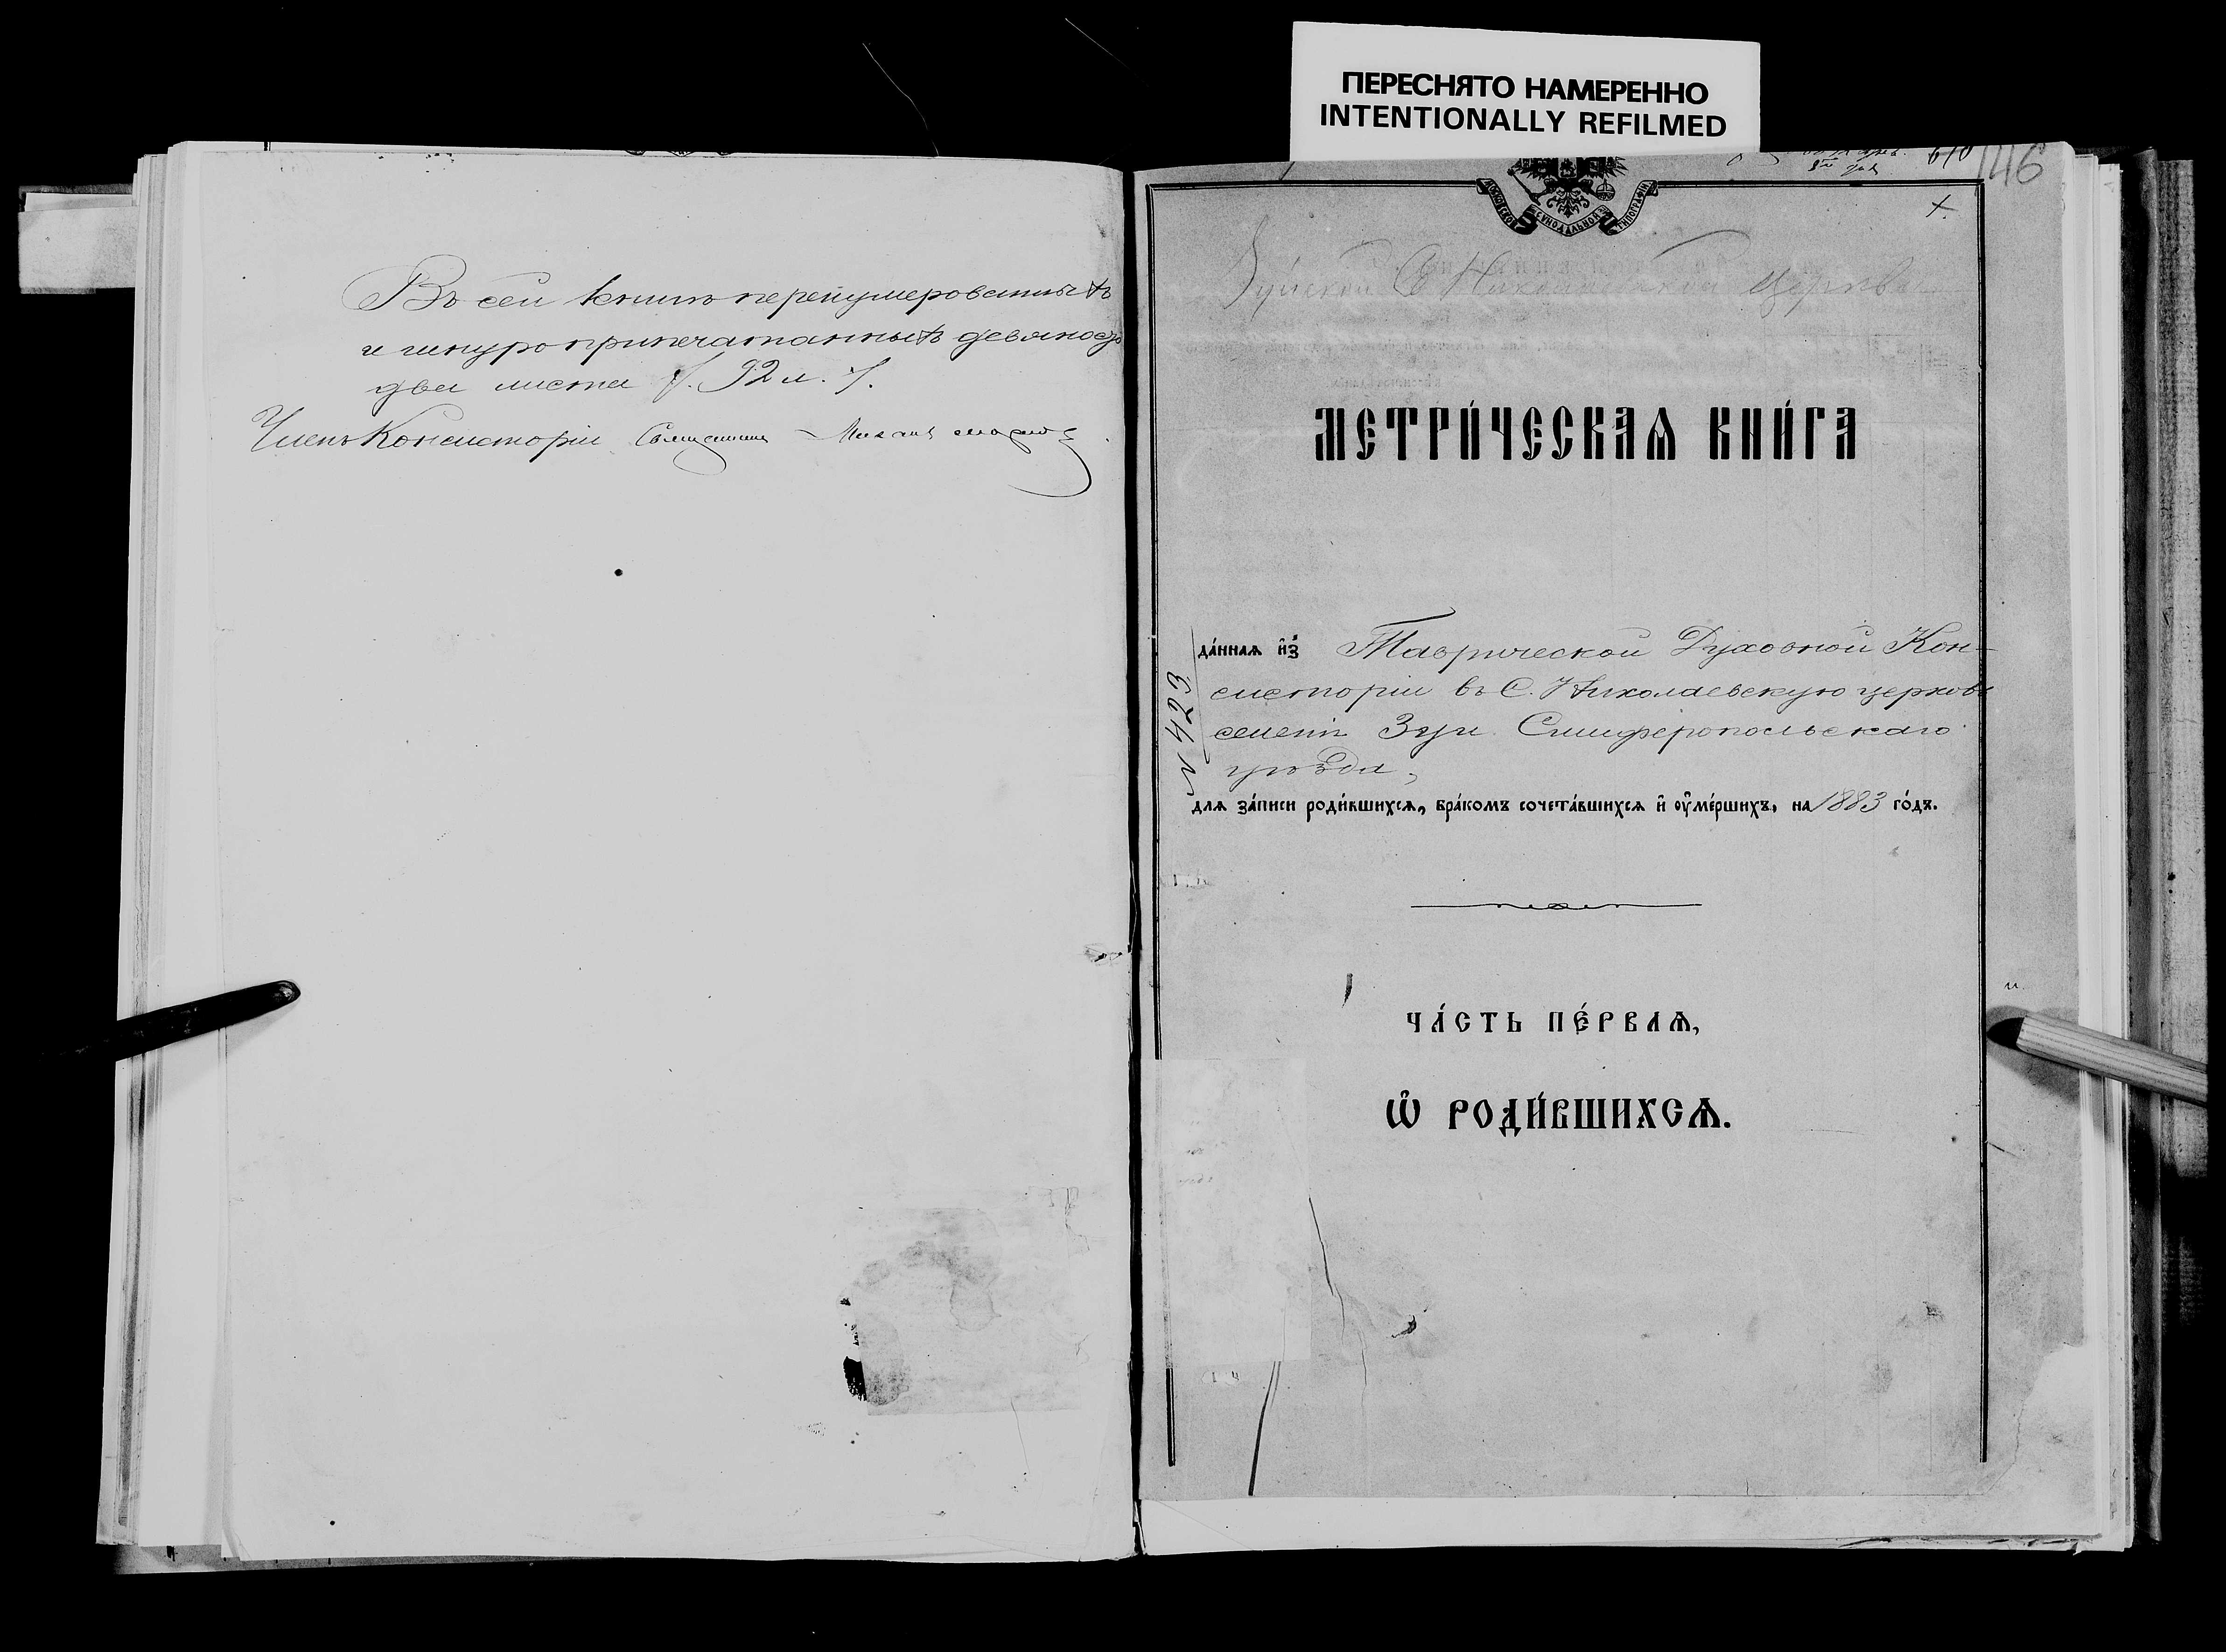 ПЕРЕСНЯТО НАМЕРЕННО
INTENTIONALLY REFILMED
Въ сей книгѣ перенумерованныхъ
и шнуроприпечатанныхъ девяносто
два листа /. 92 л. /.
Членъ Консисторіи Священник Михаил
146
МОСКОВСКОЙ СѴНОДАЛЬНОЙ ТИПОГРАФІИ
Зуйской С Николаевской Церкви
МЕТРИ́ЧЕСКАѦ КНИ́ГА
да́ннаѧ и҆з̾ Таврической Духовной Кон-
систоріи въ С. Николаевскую церковь
селенія Зуи Симферопольскаго
уѣзда,
№ 6249
длѧ за́писи роди́вшихсѧ, бра́комъ сочета́вшихсѧ и҆ ᲂу҆ме́ршихъ, на 1883 го́дъ.
ЧА́СТЬ ПЕ́РВАѦ,
Ѽ РОДИ́ВШИХСѦ.